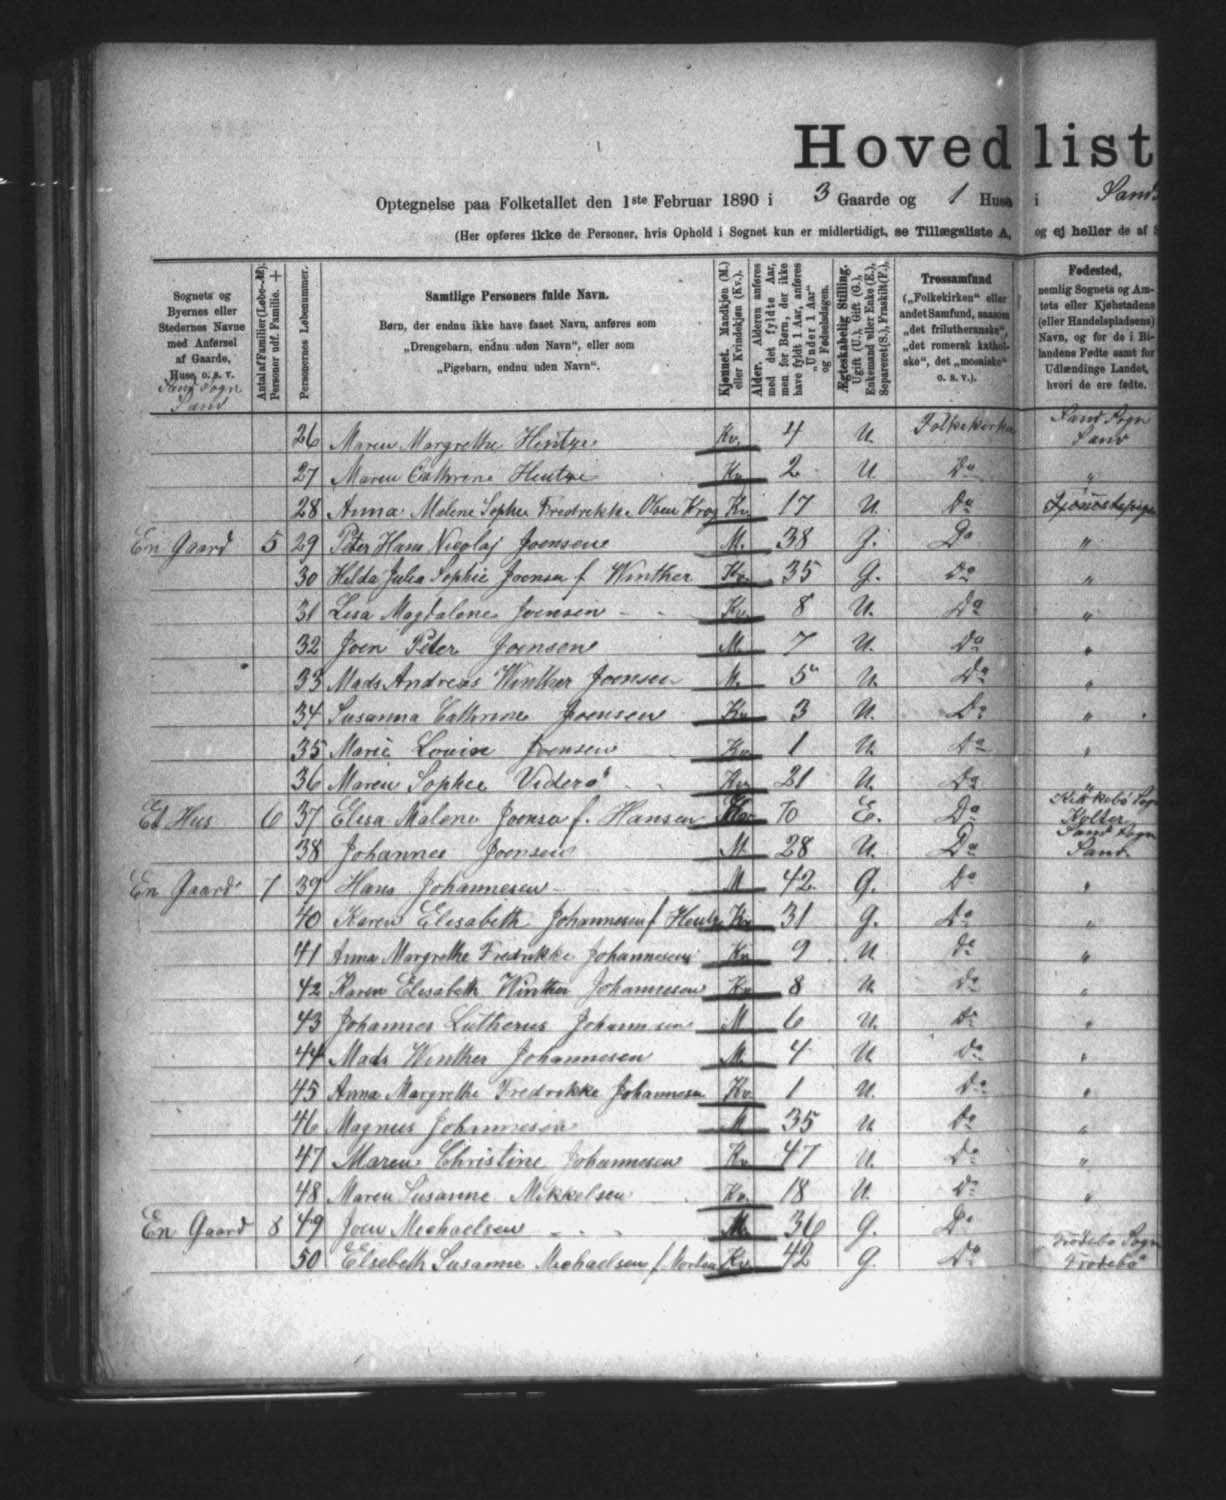 Hovedlist
Optegnelse paa Folketallet den 1ste Februar 1890 i 3 Gaarde og 1 Huse i Sands
(Her opføres ikke de Personer, hvis Ophold i Sognet kun er midlertidigt, se Tillægsliste A, og ej heller de af S
Sognets og
Byernes eller
Stedernes Navne
med Anførsel
af Gaarde,
Huse, o. s. v.
Sand Sogn
Sand
Antal af Familier (Løbe-№).
Personer udf. Familie. +
Personernes Løbenummer.
Samtlige Personers fulde Navn.
Børn, der endnu ikke have faaet Navn, anføres som
„Drengebarn, endnu uden Navn“, eller som
„Pigebarn, endnu uden Navn“.
Kjønnet. Mandkjøn (M.)
eller Kvindekjøn (Kv.).
Alder. Alderen anføres
med det fyldte Aar,
men for Børn, der ikke
have fyldt 1 Aar, anføres
„Under 1 Aar“
og Fødselsdagen.
Ægteskabelig Stilling.
Ugift (U.), Gift (G.),
Enkemand eller Enke (E.),
Separeret (S.), Fraskilt (F.).
Trossamfund
(„Folkekirken“ eller
andet Samfund, saasom
„det frilutheranske“,
„det romersk kathol-
ske“, det „mosaiske“
o. s. v.).
Fødested,
nemlig Sognets og Am-
tets eller Kjøbstadens
(eller Handelspladsens)
Navn, og for de i Bi-
landene Fødte samt for
Udlændinge Landet,
hvori de ere fødte.
26 Maren Margrethe Hentze Kv. 4 U. Folkekirken Sand Sogn Sand
27 Maren Cathrine Hentze Kv. 2 U Do "
28 Anna Malene Sophie Fredrikke Olsen Krog Kv. 17 U. Do
En Gaard 5 29 Peter Hans Nicolaj Joensen M. 38 G. Do "
30 Hilda Julia Sophie Joensen f. Winther Kv. 35 G. Do "
31 Lisa Magdalene Joensen Kv. 8 U. Do "
32 Joen Peter Joensen M. 7 U. Do "
33 Mads Andreas Winther Joensen M. 5 U. Do "
34 Susanna Cathrine Joensen Kv. 3 U. Do "
35 Marie Louise Joensen Kv. 1 U. Do "
36 Maren Sophie Viderø Kv. 21 U. Do "
Et Hus 6 37 Elisa Malene Joensen f. Hansen Kv. 70 E. Do Kirkebø Sogn Kolter
38 Johannes Joensen M. 28 U. Do Sand Sogn Sand
En Gaard 7 39 Hans Johannesen M 42 G. Do "
40 Karen Elisabeth Johannesen f Hentze Kv. 31 G. Do "
41 Anna Margrethe Fredrikke Johannesen Kv. 9 U Do "
42 Karen Elisabeth Winther Johannesen Kv. 8 U. Do "
43 Johannes Lutherus Johannesen M 6 U. Do "
44 Mads Winther Johannesen M. 4 U Do "
45 Anna Margrethe Fredrikke Johannesen Kv. 1 U. Do "
46 Magnus Johannesen M 35 U Do "
47 Maren Christine Johannesen Kv. 47 U. Do "
48 Maren Susanne Mikkelsen Kv. 18 U. Do "
En Gaard 8 49 Joen Michaelsen M. 36 G. Do "
50 Elsebeth Susanne Michaelsen f. Kv. 42 G. Do